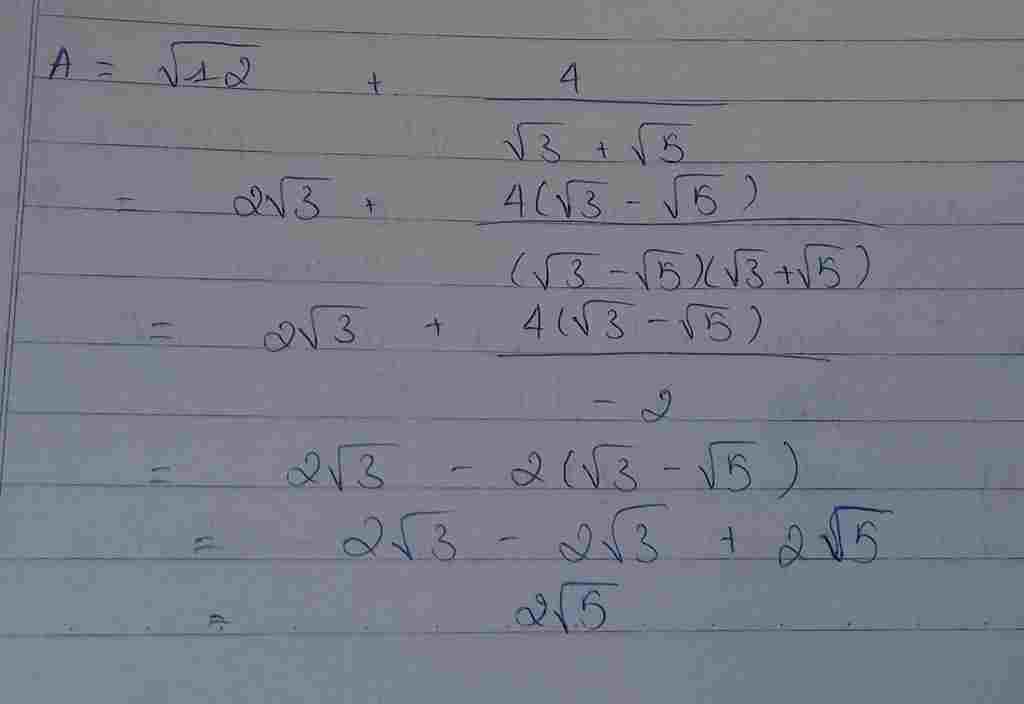 A = √12 + 4
√3 + √5
= 2√3 + 4(√3 - √5)
(√3 - √5)(√3 + √5)
= 2√3 + 4(√3 - √5)
- 2
= 2√3 - 2(√3 - √5)
= 2√3 - 2√3 + 2√5
= 2√5